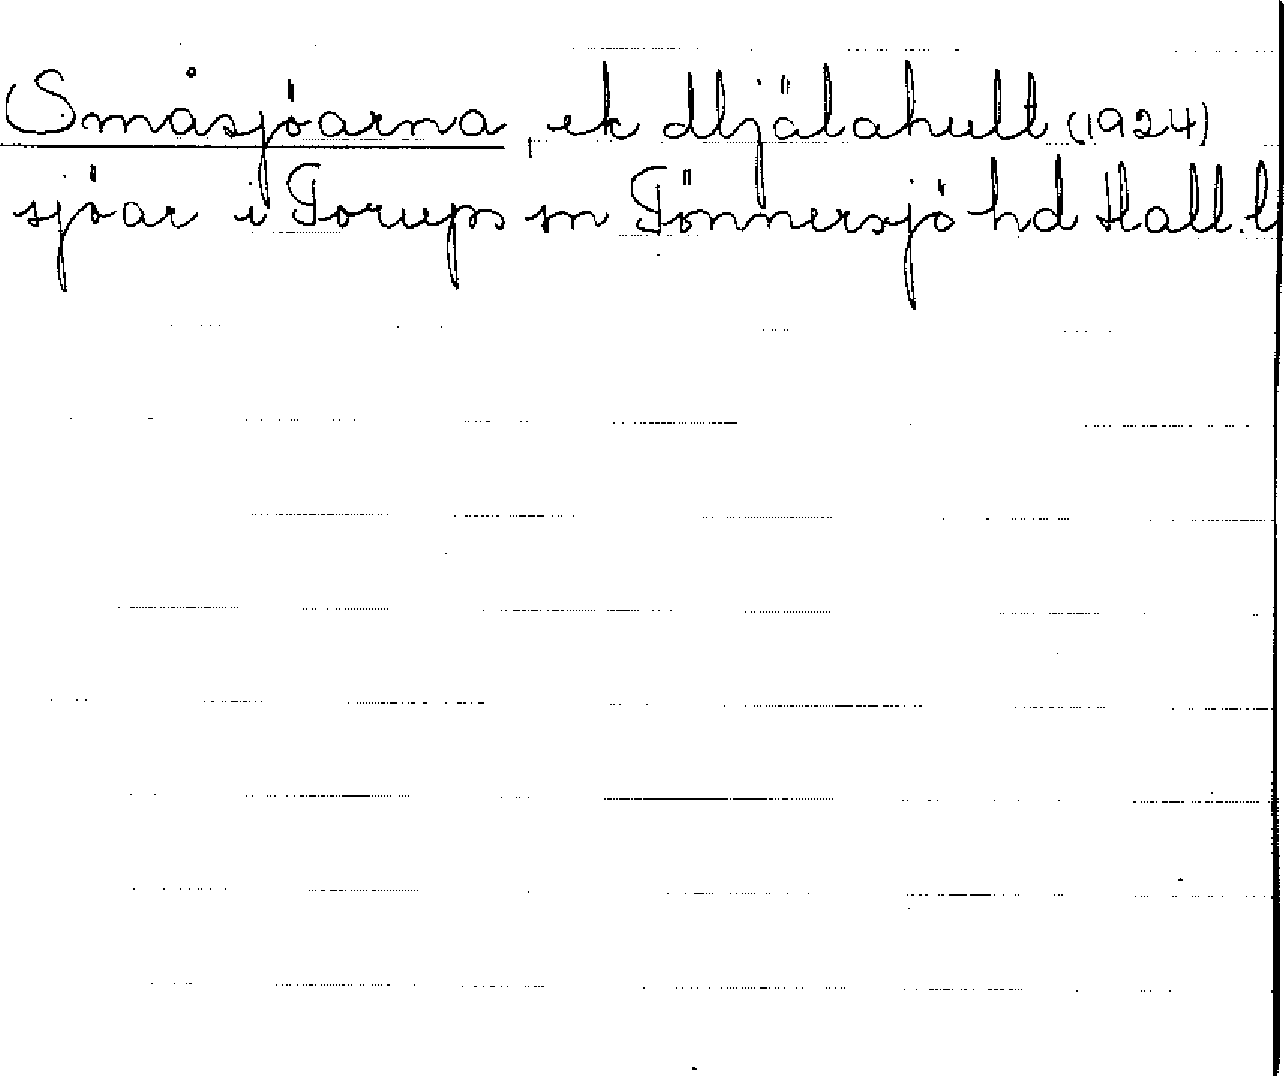 Småsjöarna, ek Mjälahult (1924)
sjöar i Torups sn Tönnersjö hd Hall.l